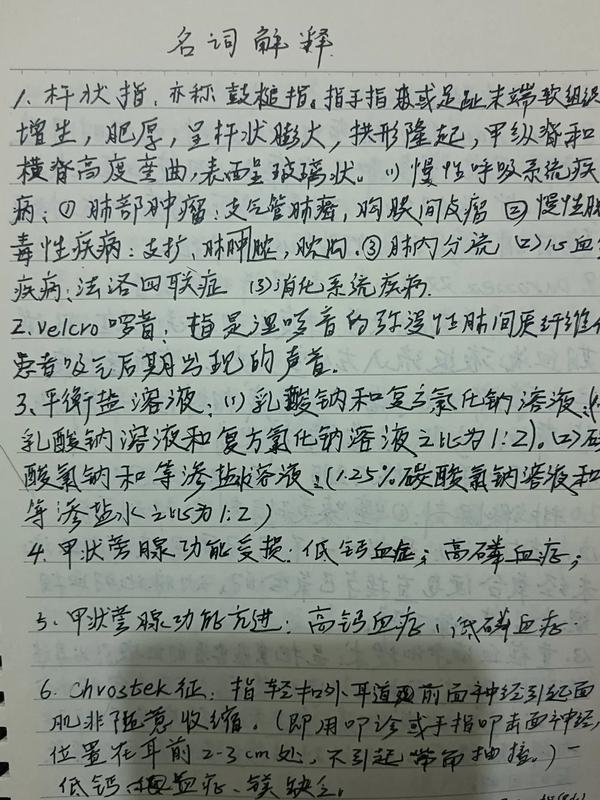 名词解释
1. 杵状指,亦称鼓槌指。指手指或足趾末端软组织
增生,肥厚,呈杵状膨大,拱形隆起,甲纵脊和
横脊高度弯曲,表面呈玻璃状。(1)慢性呼吸系统疾
病:①肺部肿瘤:支气管肺癌,胸膜间皮瘤 ②慢性
毒性疾病:支扩、肺脓,脓胸.③肺内分流 (2)心血
疾病:法洛四联症 (3)消化系统疾病.
2. velcro啰音:指是湿啰音的弥漫性肺间质纤维
患者吸气后期出现的声音.
3、平衡盐溶液:(1)乳酸钠和复方氯化钠溶液:
乳酸钠溶液和复方氯化钠溶液之比为1:2)。(2)
酸氢钠和等渗盐水溶液:(1.25%碳酸氢钠溶液和
等渗盐水之比为1:2)
4. 甲状旁腺功能受损:低钙血症;高磷血症;
5. 甲状旁腺功能亢进:高钙血症、低磷血症
6. chvostek征:指轻扣外耳道前面神经引起面
肌非随意收缩.(即用叩诊或手指叩击面神经,
位置在耳前2-3cm处,不引起抽搐。)—
低钙血症、镁缺乏.